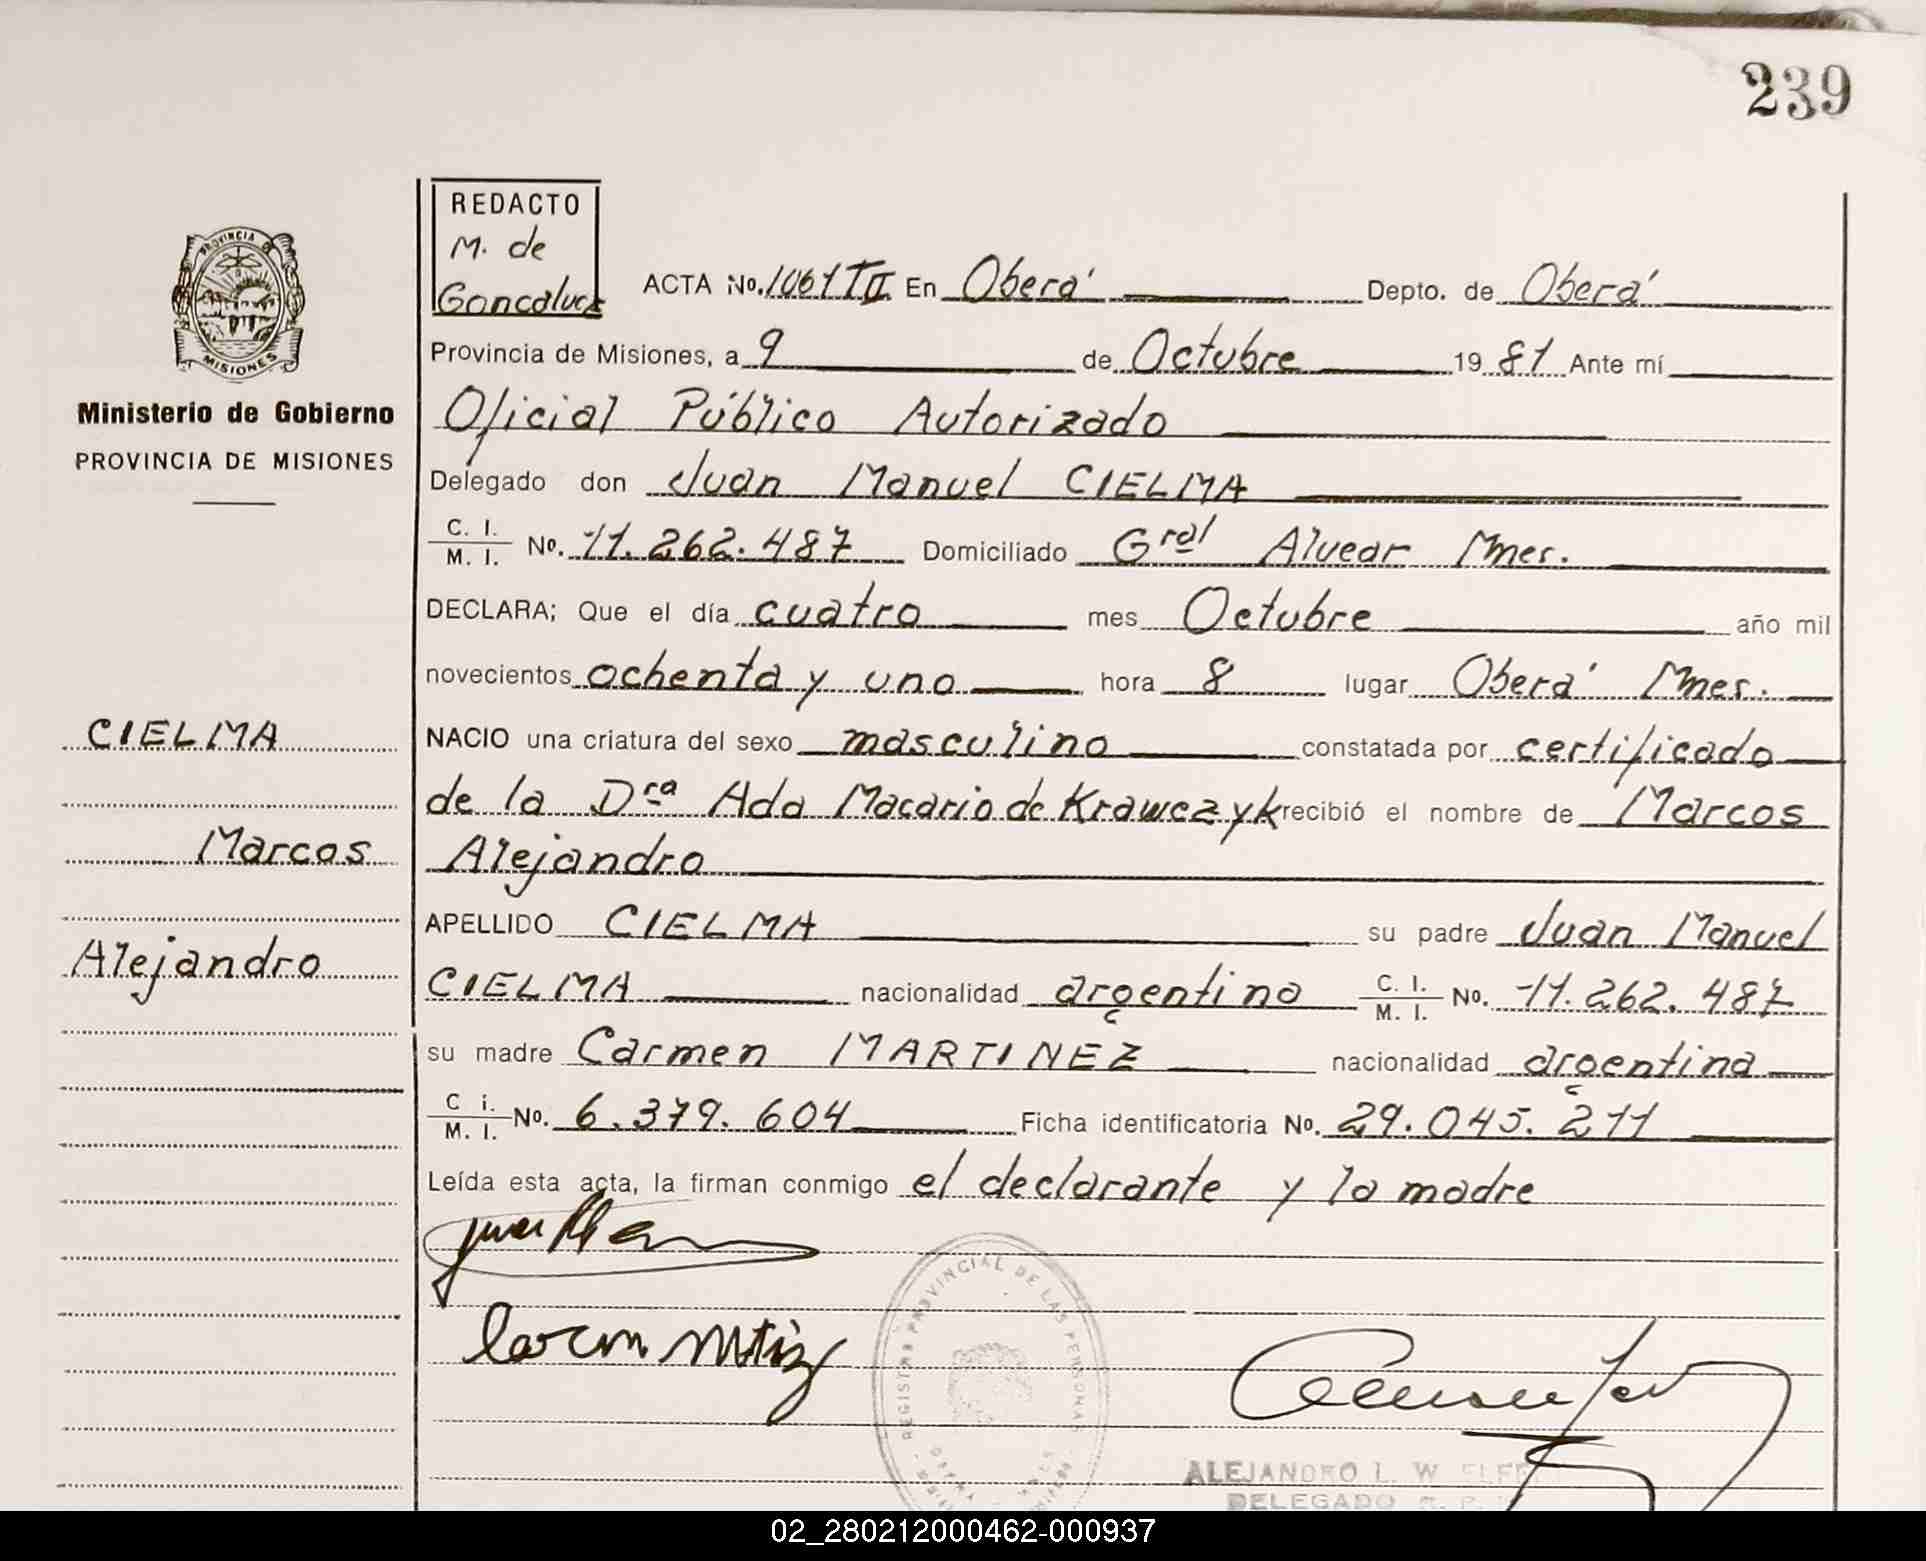 239
REDACTO
M. de
Goncalvez
PROVINCIA DE
MISIONES
Ministerio de Gobierno
PROVINCIA DE MISIONES
ACTA No. 1061 TII En Oberá Depto. de Oberá
Provincia de Misiones, a 9 de Octubre 19 81 Ante mí
Oficial Público Autorizado
Delegado don Juan Manuel CIELMA
C. I. / M. I. No. 11.262.487 Domiciliado Gral Alvear Mnes.
DECLARA; Que el día cuatro mes Octubre año mil
novecientos ochenta y uno hora 8 lugar Oberá Mnes.
NACIO una criatura del sexo masculino constatada por certificado
de la Dra Ada Macario de Krawczyk recibió el nombre de Marcos
Alejandro
APELLIDO CIELMA su padre Juan Manuel
CIELMA nacionalidad argentino C. I. / M. I. No. 11.262.487
su madre Carmen MARTINEZ nacionalidad argentina
C i. / M. I. No. 6.379.604 Ficha identificatoria No. 29.045.211
Leída esta acta, la firman conmigo el declarante y la madre
CIELMA
Marcos
Alejandro
REGISTRO PROVINCIAL DE LAS PERSONAS
ALEJANDRO L. W
DELEGADO
02_280212000462-000937